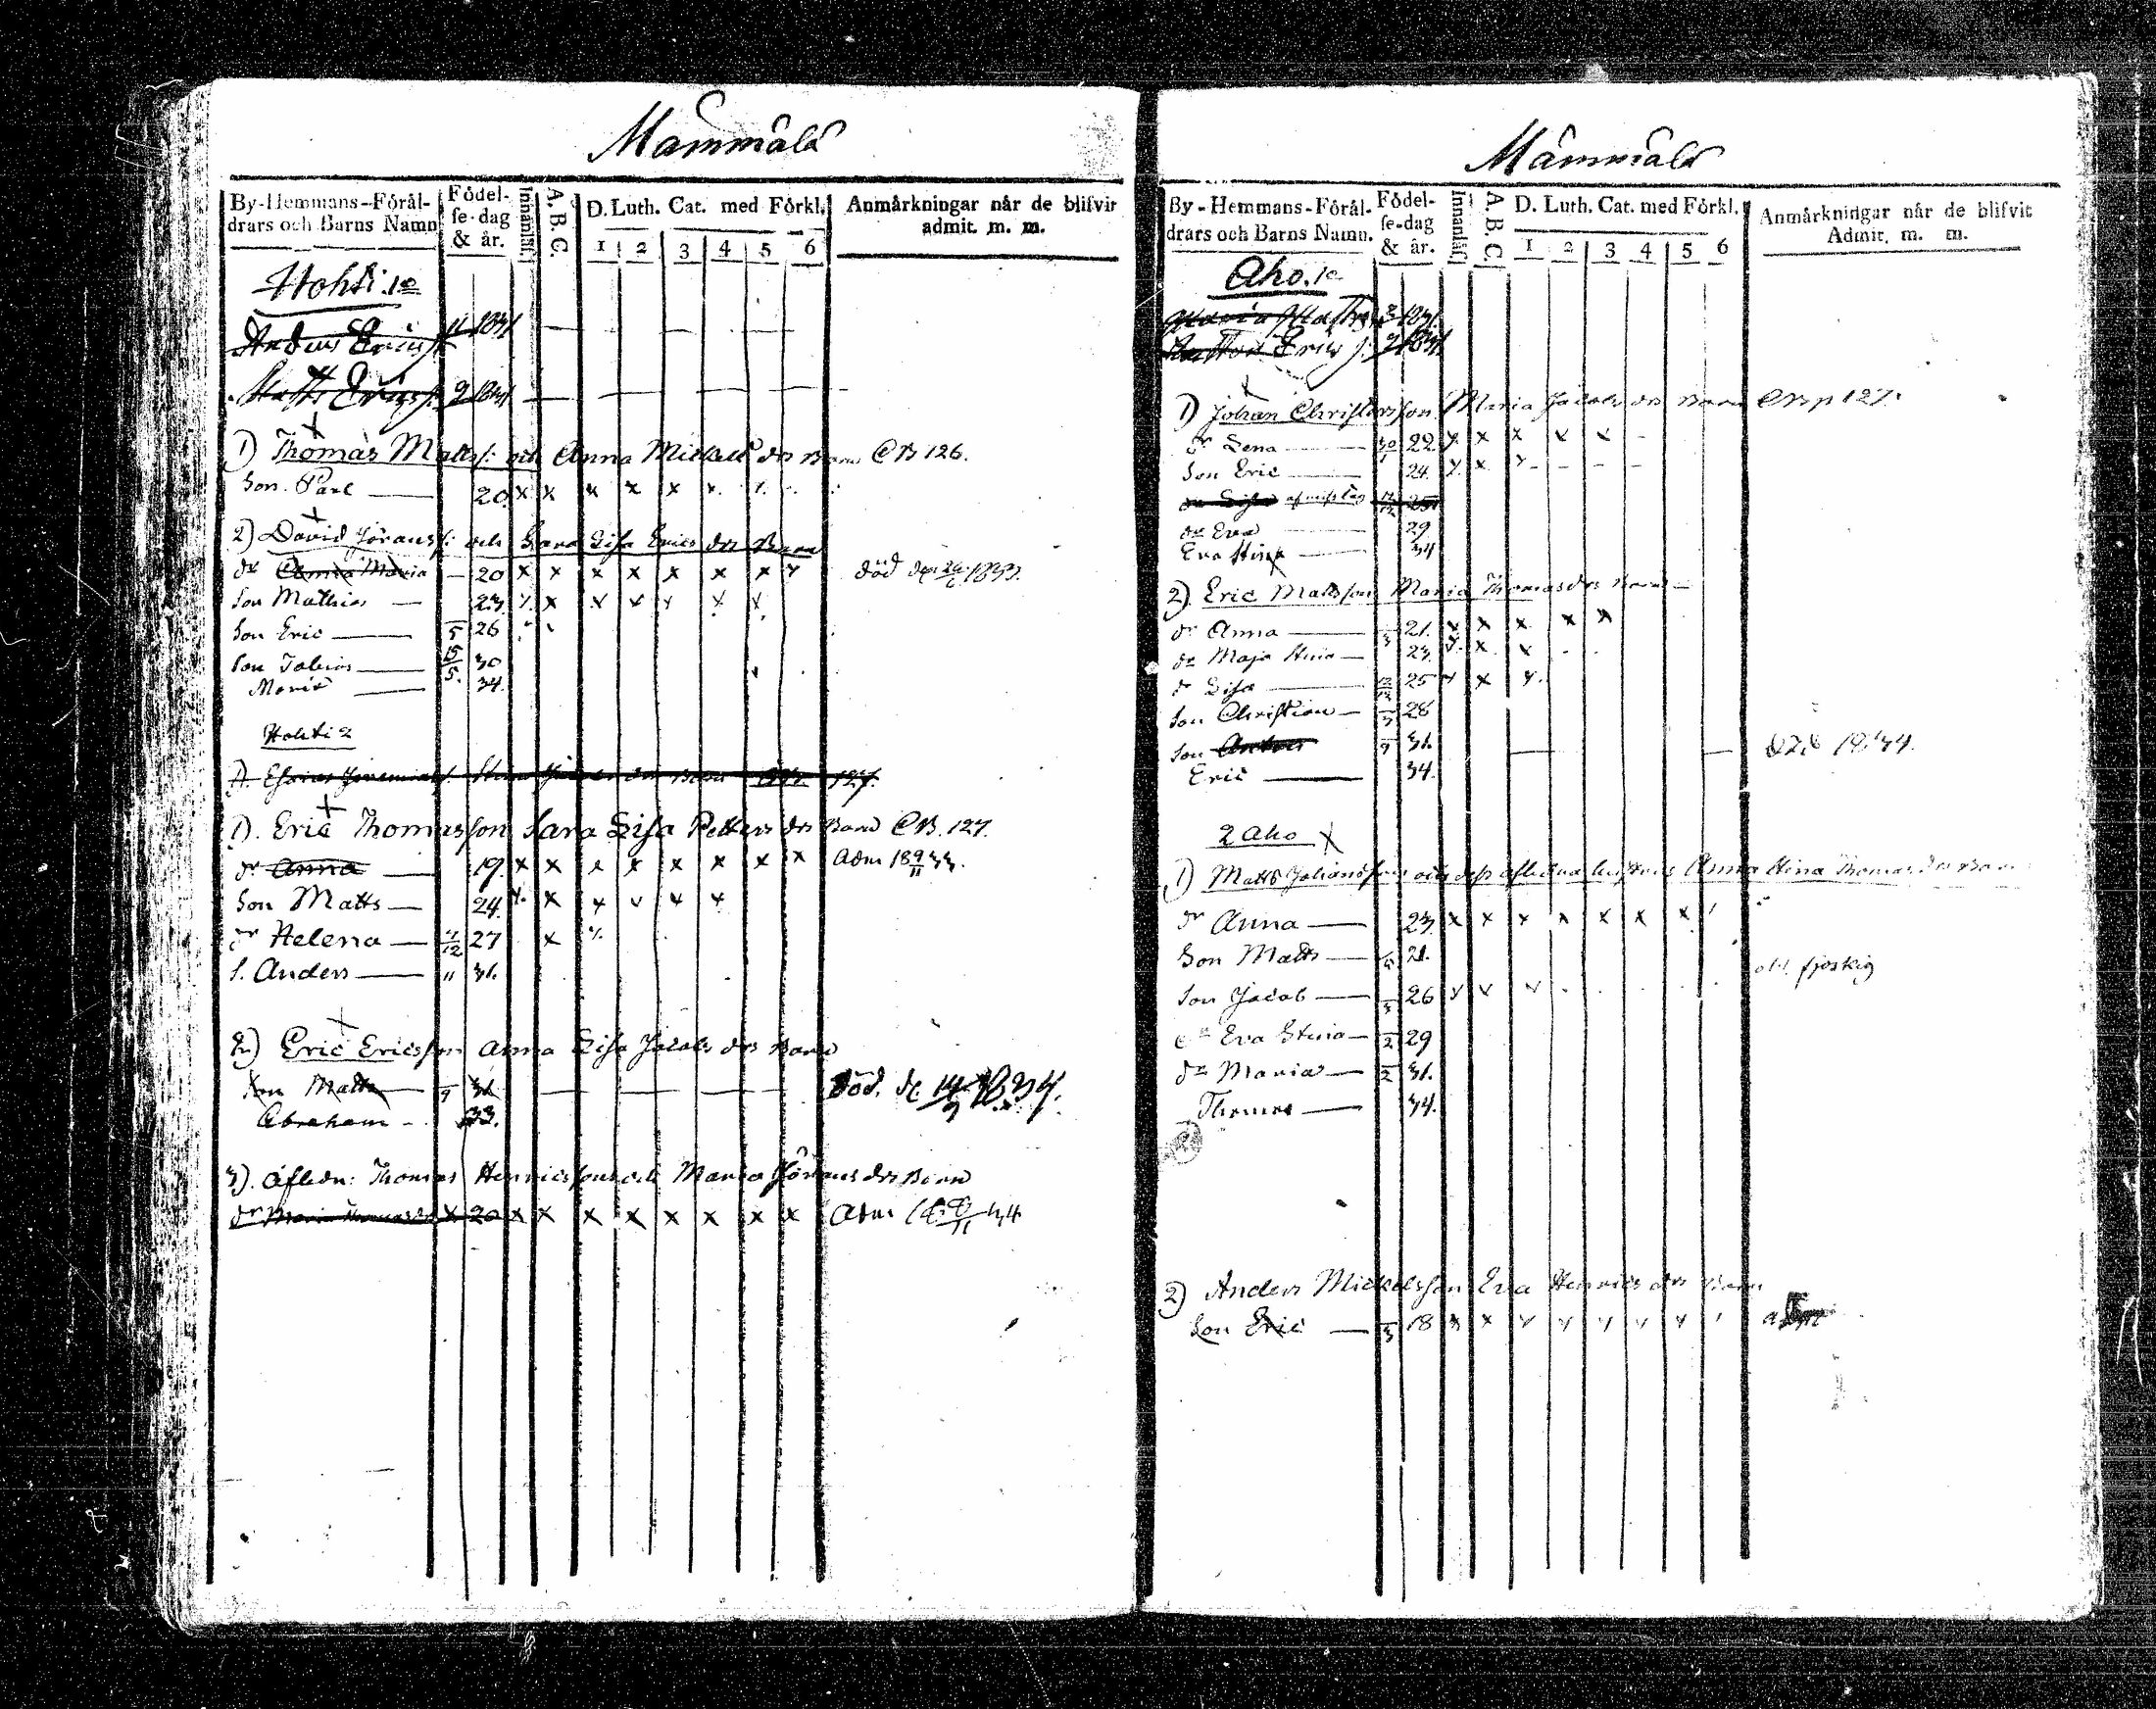 Mammälä
By-Hemmans-Föräl-
drars och Barns Namn
Födel-
se-dag
& år.
Innanläs.
A. B. C.
D. Luth. Cat. med Förkl.
1 2 3 4 5 6
Anmärkningar när de blifvit
admit. m. m.
Hohti. 1o
Anders Ericss. 11 1831
Matts Ericss. 9 1831
1) Thomas Mattss: och Anna Mickels dr Barn CB 126.
Son. Paul 20 x x x x x x
2) David Jöranss: och Sara Lisa Erics dr Barn
dr Anna Maria 20 x x x x x x x x död 1833.
Son Mathias 23 x x x x x x x
Son Eric 5 26
Son Tobias 15/5 30
Maria 34.
Hohti 2
1. Esaias Jeremiass. Stina dr Barn CB. 127.
1). Eric Thomasson Sara Lisa Petters dr Barn CB. 127.
dr Anna 19 x x x x x x x x Adm 18 9/11 33.
Son Matts 24. x x x x x x
dr Helena 27 x x
S. Anders 11 31.
2) Eric Ericsson Anna Lisa Jacobs dr Barn
Son Matts 9 31 Död. d. 14/9 1834.
Abraham 33.
3). Afledn: Thomas Henricssons och Maria Jörans dr Barn
dr Maria Thomasdr x 20 x x x x x x x x Adm 18 9/11 34
Mämmälä
By-Hemmans-Föräl-
drars och Barns Namn.
Födel-
se-dag
& år.
Innanläs.
A. B. C.
D. Luth. Cat. med Förkl.
1 2 3 4 5 6
Anmärkningar när de blifvit
Admit. m. m.
Aho. 1o
Maria 31.
Erics 9 1831
1) Johan Christersson Maria Jacobs dr Barn CB p 127.
dr Lena 30/1 22 x x x x x
Son Eric 24. x x x
dr Lisa 12/12 25
dr Eva 29
Eva Stina 34
2). Eric Mattsson Maria Thomas dr Barn
dr Anna 21. x x x x x
dr Maja Stina 23. x x x
dr Lisa 12/12 25 x x x
Son Christian 28
Son Anders 9 31. 1834.
Eric 34.
2 Aho
1) Matts Johansson och dess aflidna hustrus Anna Stina Thomas dr Barn
dr Anna 23. x x x x x x x
Son Matts 21.
Son Jacob 26 x x x
dr Eva Stina 2 29
dr Maria 2 31.
Thomas 34.
2) Anders Mickelsson Eva Henrics dr Barn
Son Eric 18 x x x x x x x